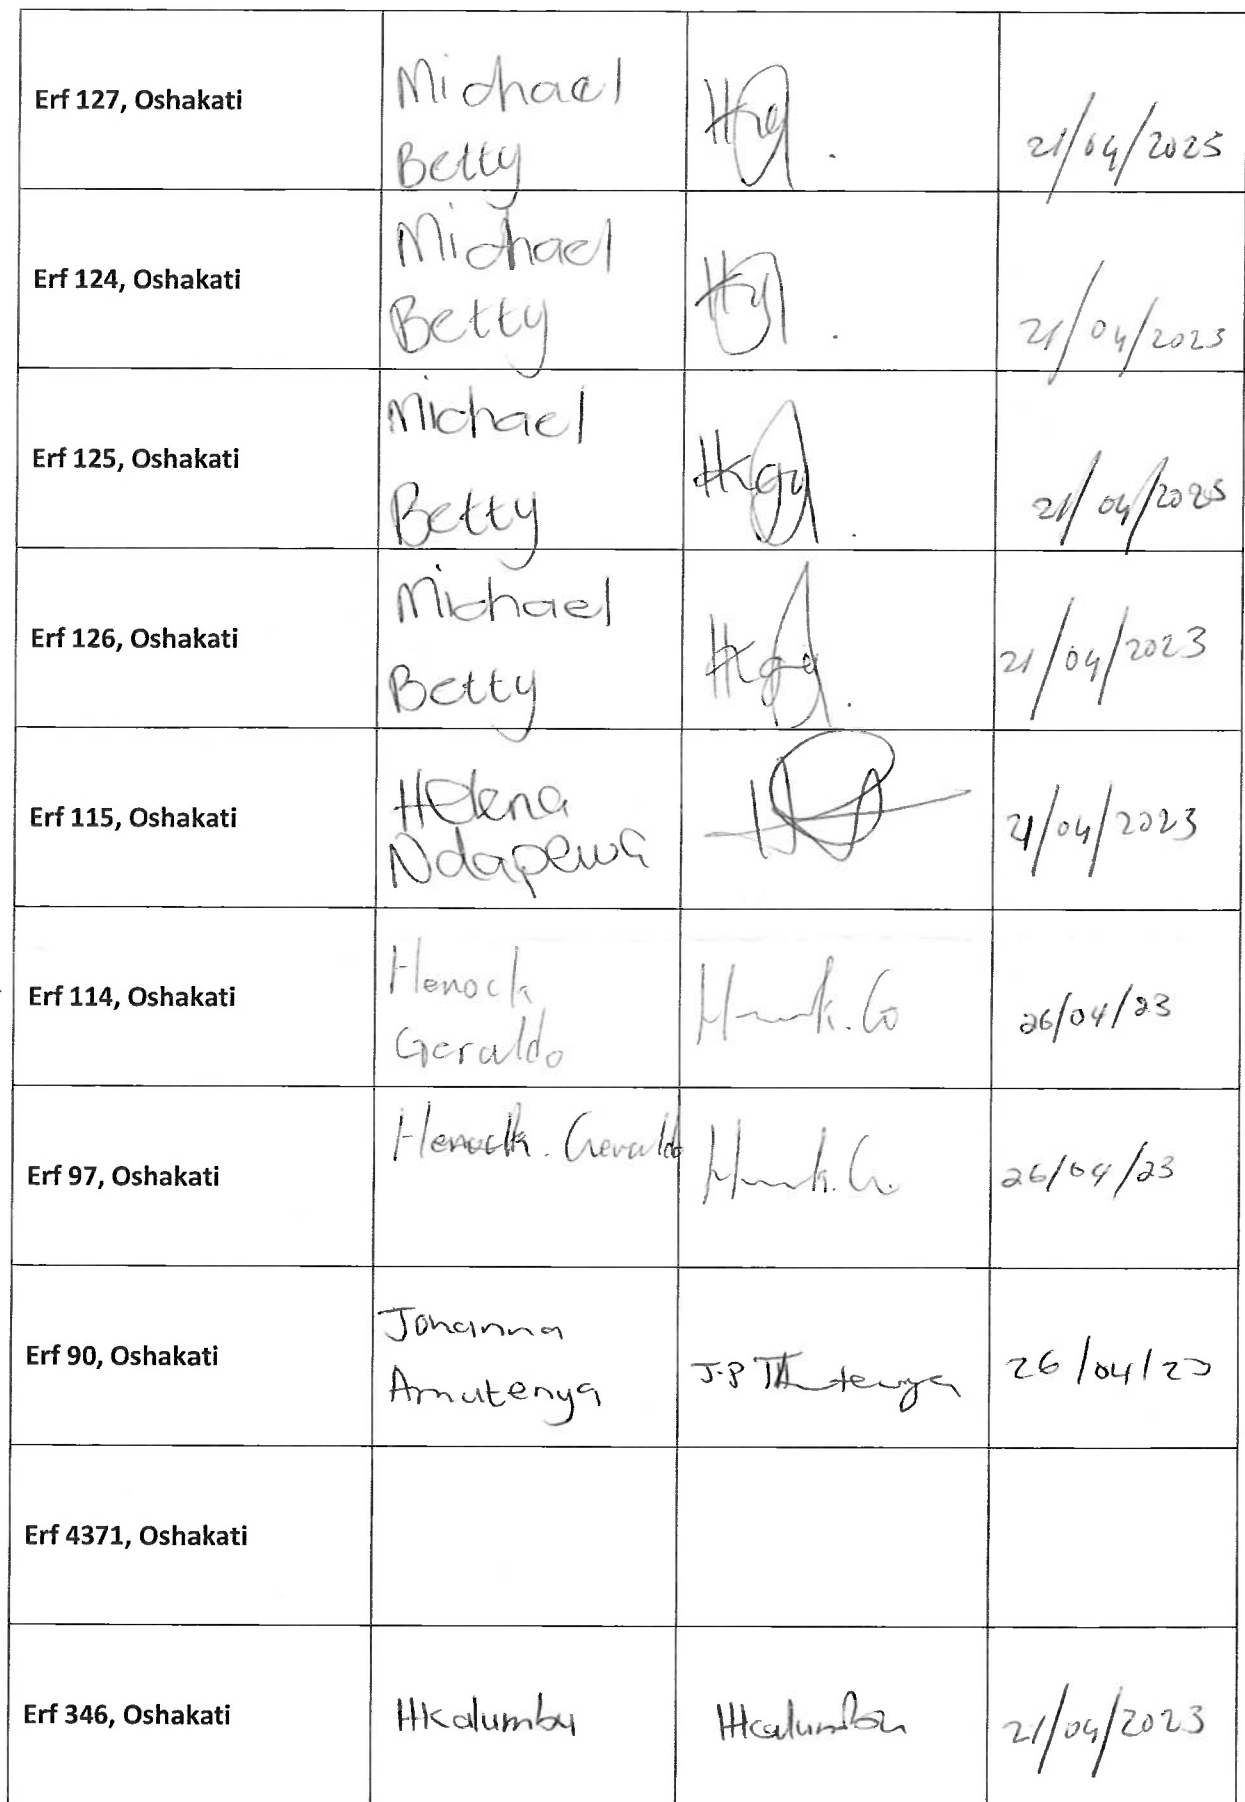 Erf 127, Oshakati
Michael
Betty
21/04/2023
Erf 124, Oshakati
Michael
Betty
21/04/2023
Erf 125, Oshakati
Michael
Betty
21/04/2023
Erf 126, Oshakati
Michael
Betty
21/04/2023
Erf 115, Oshakati
Helena
Ndapewa
21/04/2023
Erf 114, Oshakati
Henock
Geraldo
26/04/23
Erf 97, Oshakati
Henock. Geraldo
26/04/23
Erf 90, Oshakati
Johanna
Amutenya
26/04/23
Erf 4371, Oshakati
Erf 346, Oshakati
HKalumbu
HKalumbu
21/04/2023